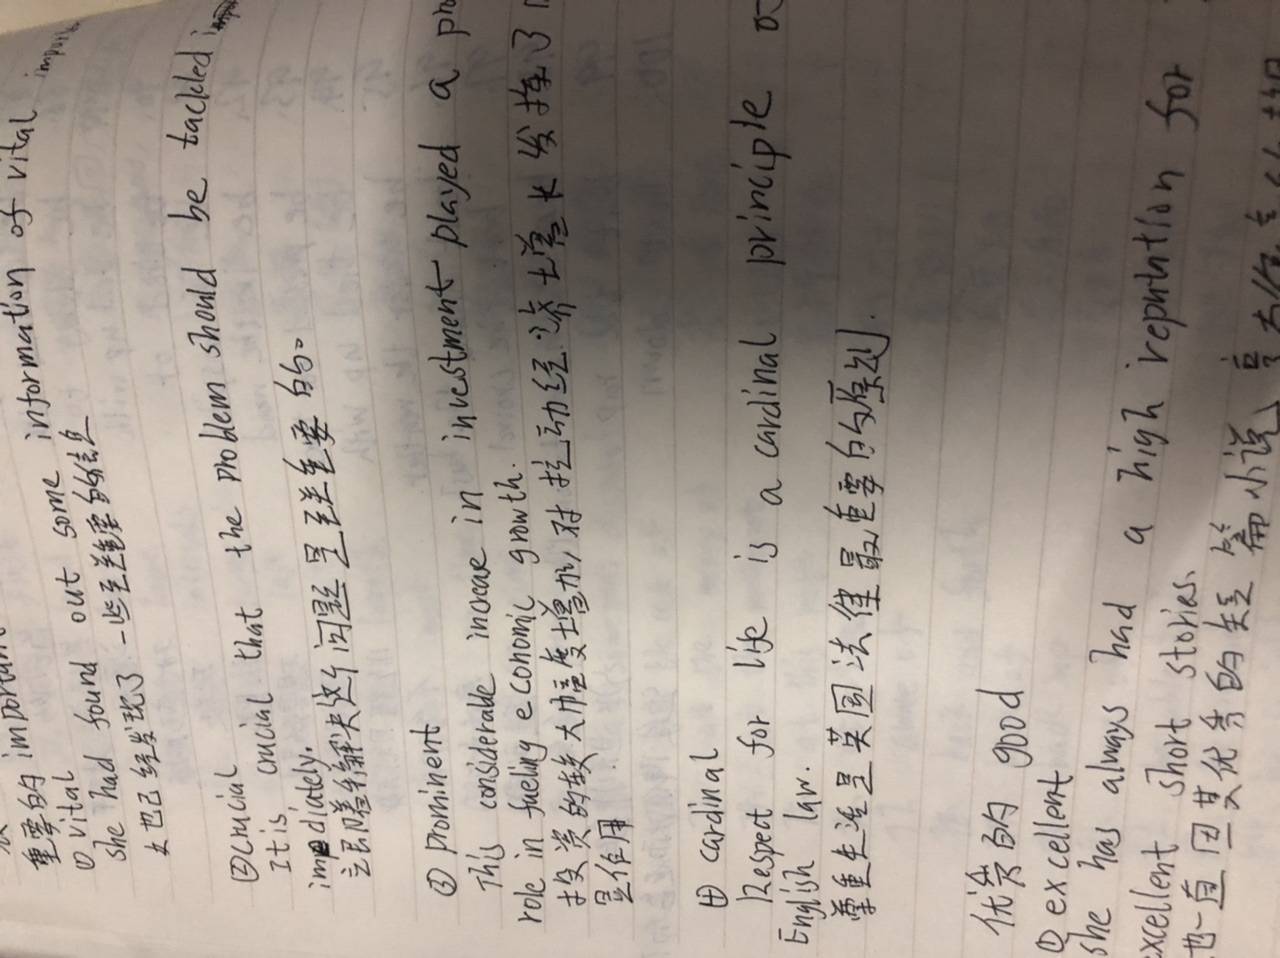 重要的 important
① vital
she had found out some information of vital
她已经发现了一些至关重要的信息
② crucial
It is crucial that the problem should be tackled
immediately.
立即着手解决这个问题是至关重要的。
③ prominent
This considerable increase in investment played a
role in fueling economic growth.
投资的大幅度增加,对拉动经济增长发挥了
显作用
④ cardinal
Respect for life is a cardinal principle
English law.
尊重生活是英国法律最重要的原则.
优秀的 good
① excellent
she has always had a high reputation for
excellent short stories.
她一直因其优秀的短篇小说